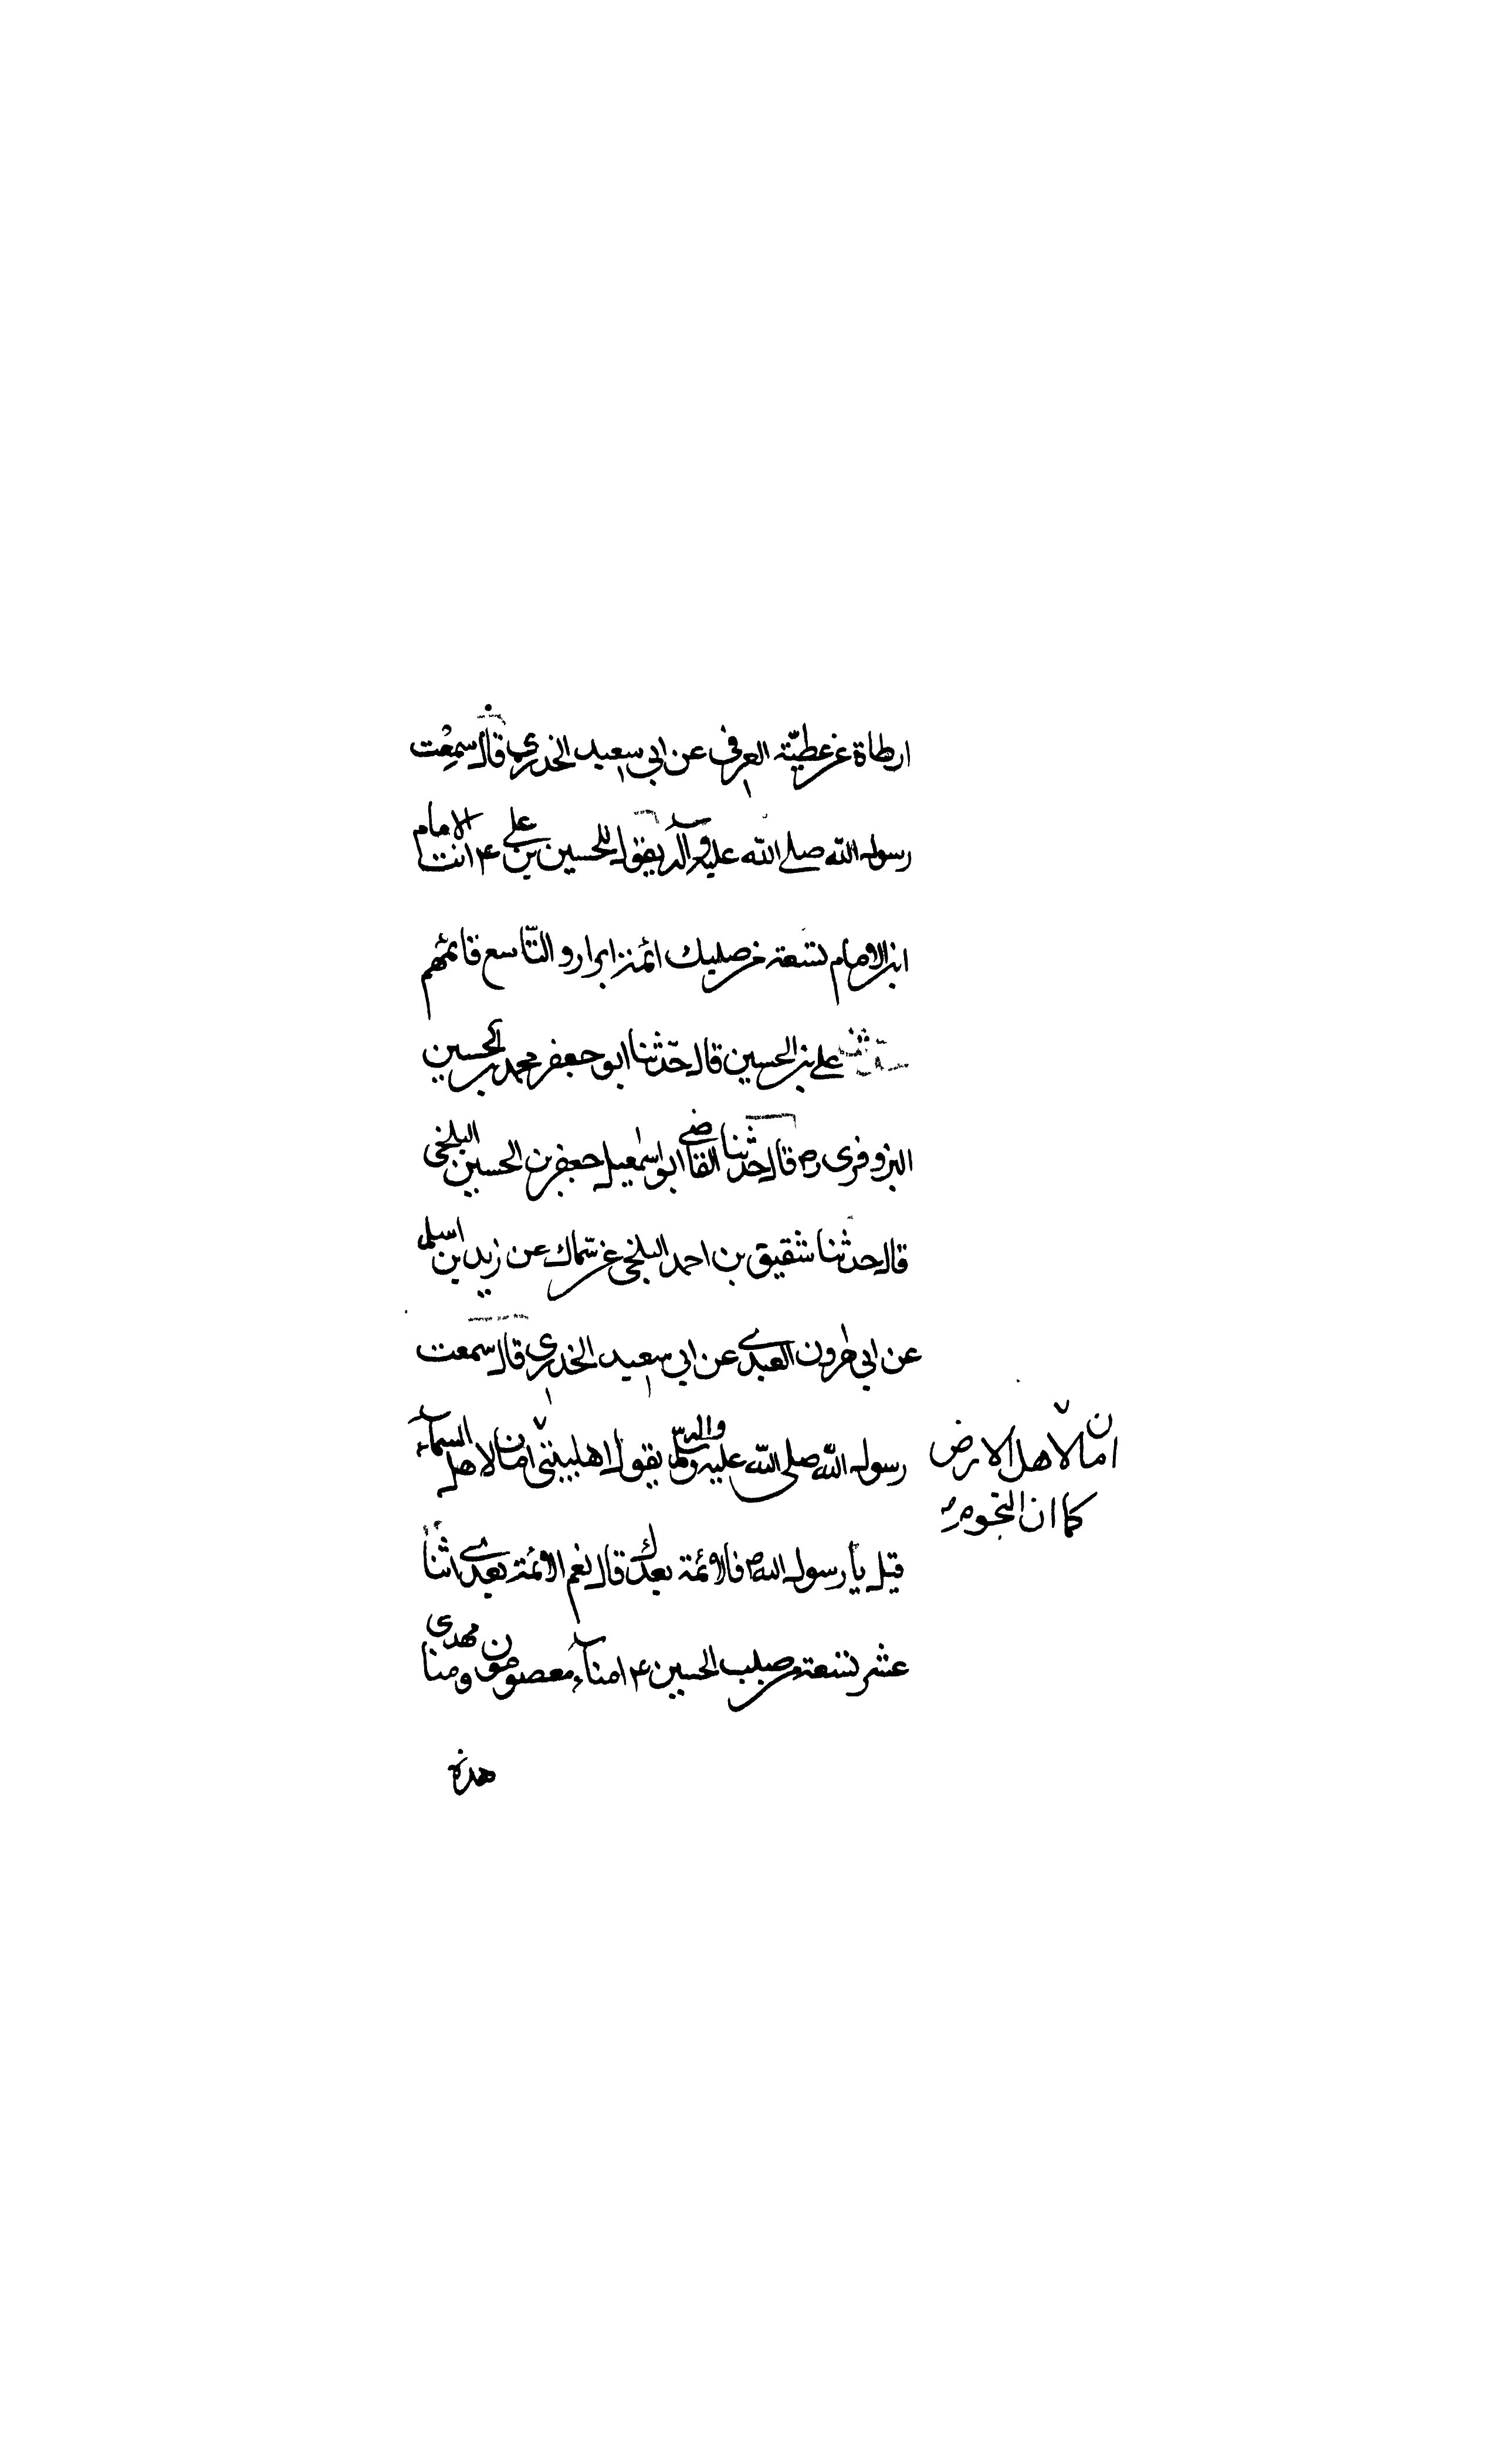 ارطاة عن عطيّة العوفي عن ابي سعيد الخدري قال سمعت
رسول الله صلى الله عليه وآله يقول للحسين بن علي ع انت الامام
ابن الامام تسعة من صلبك ائمة ابرار والتّاسع قائمهم
علي بن الحسين قال حدّثنا ابو جعفر محمد بن الحسين
البزوفرى ره قال حدثنا القاضي ابو اسمعيل جعفر بن الحسين البلخى
قال حدثنا شقيق بن احمد البلخى عن سمّاك عن زيد ابن اسلم
عن ابي هرون العبدي عن ابي سعيد الخدري قال سمعت
رسول الله صلى الله عليه وآله وسلّم يقول اهلبيتي امان لاهل السمآء
امان لاهل الارض
كما ان النجوم
قيل يا رسول الله ص فالائمة بعدك قال نعم الائمة بعدي اثنا
عشر تسعة من صلب الحسين ع امنآء معصومون ومنا مهدى
هذه